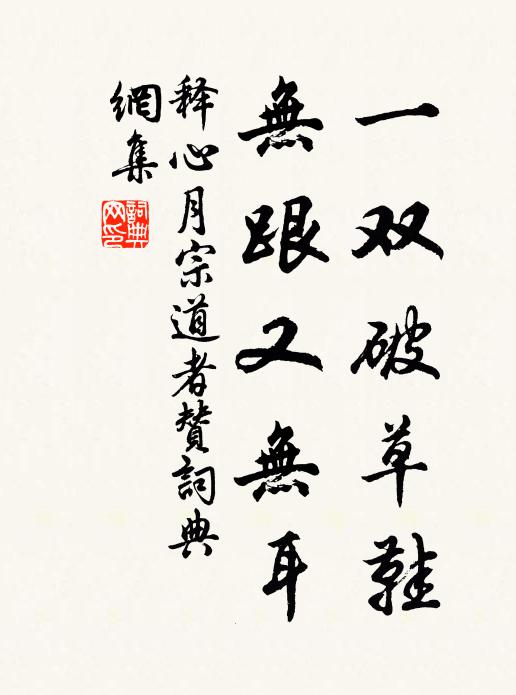 一双破草鞋
無跟又無耳
释心月宗道者赞詞典
網集
詞典網印